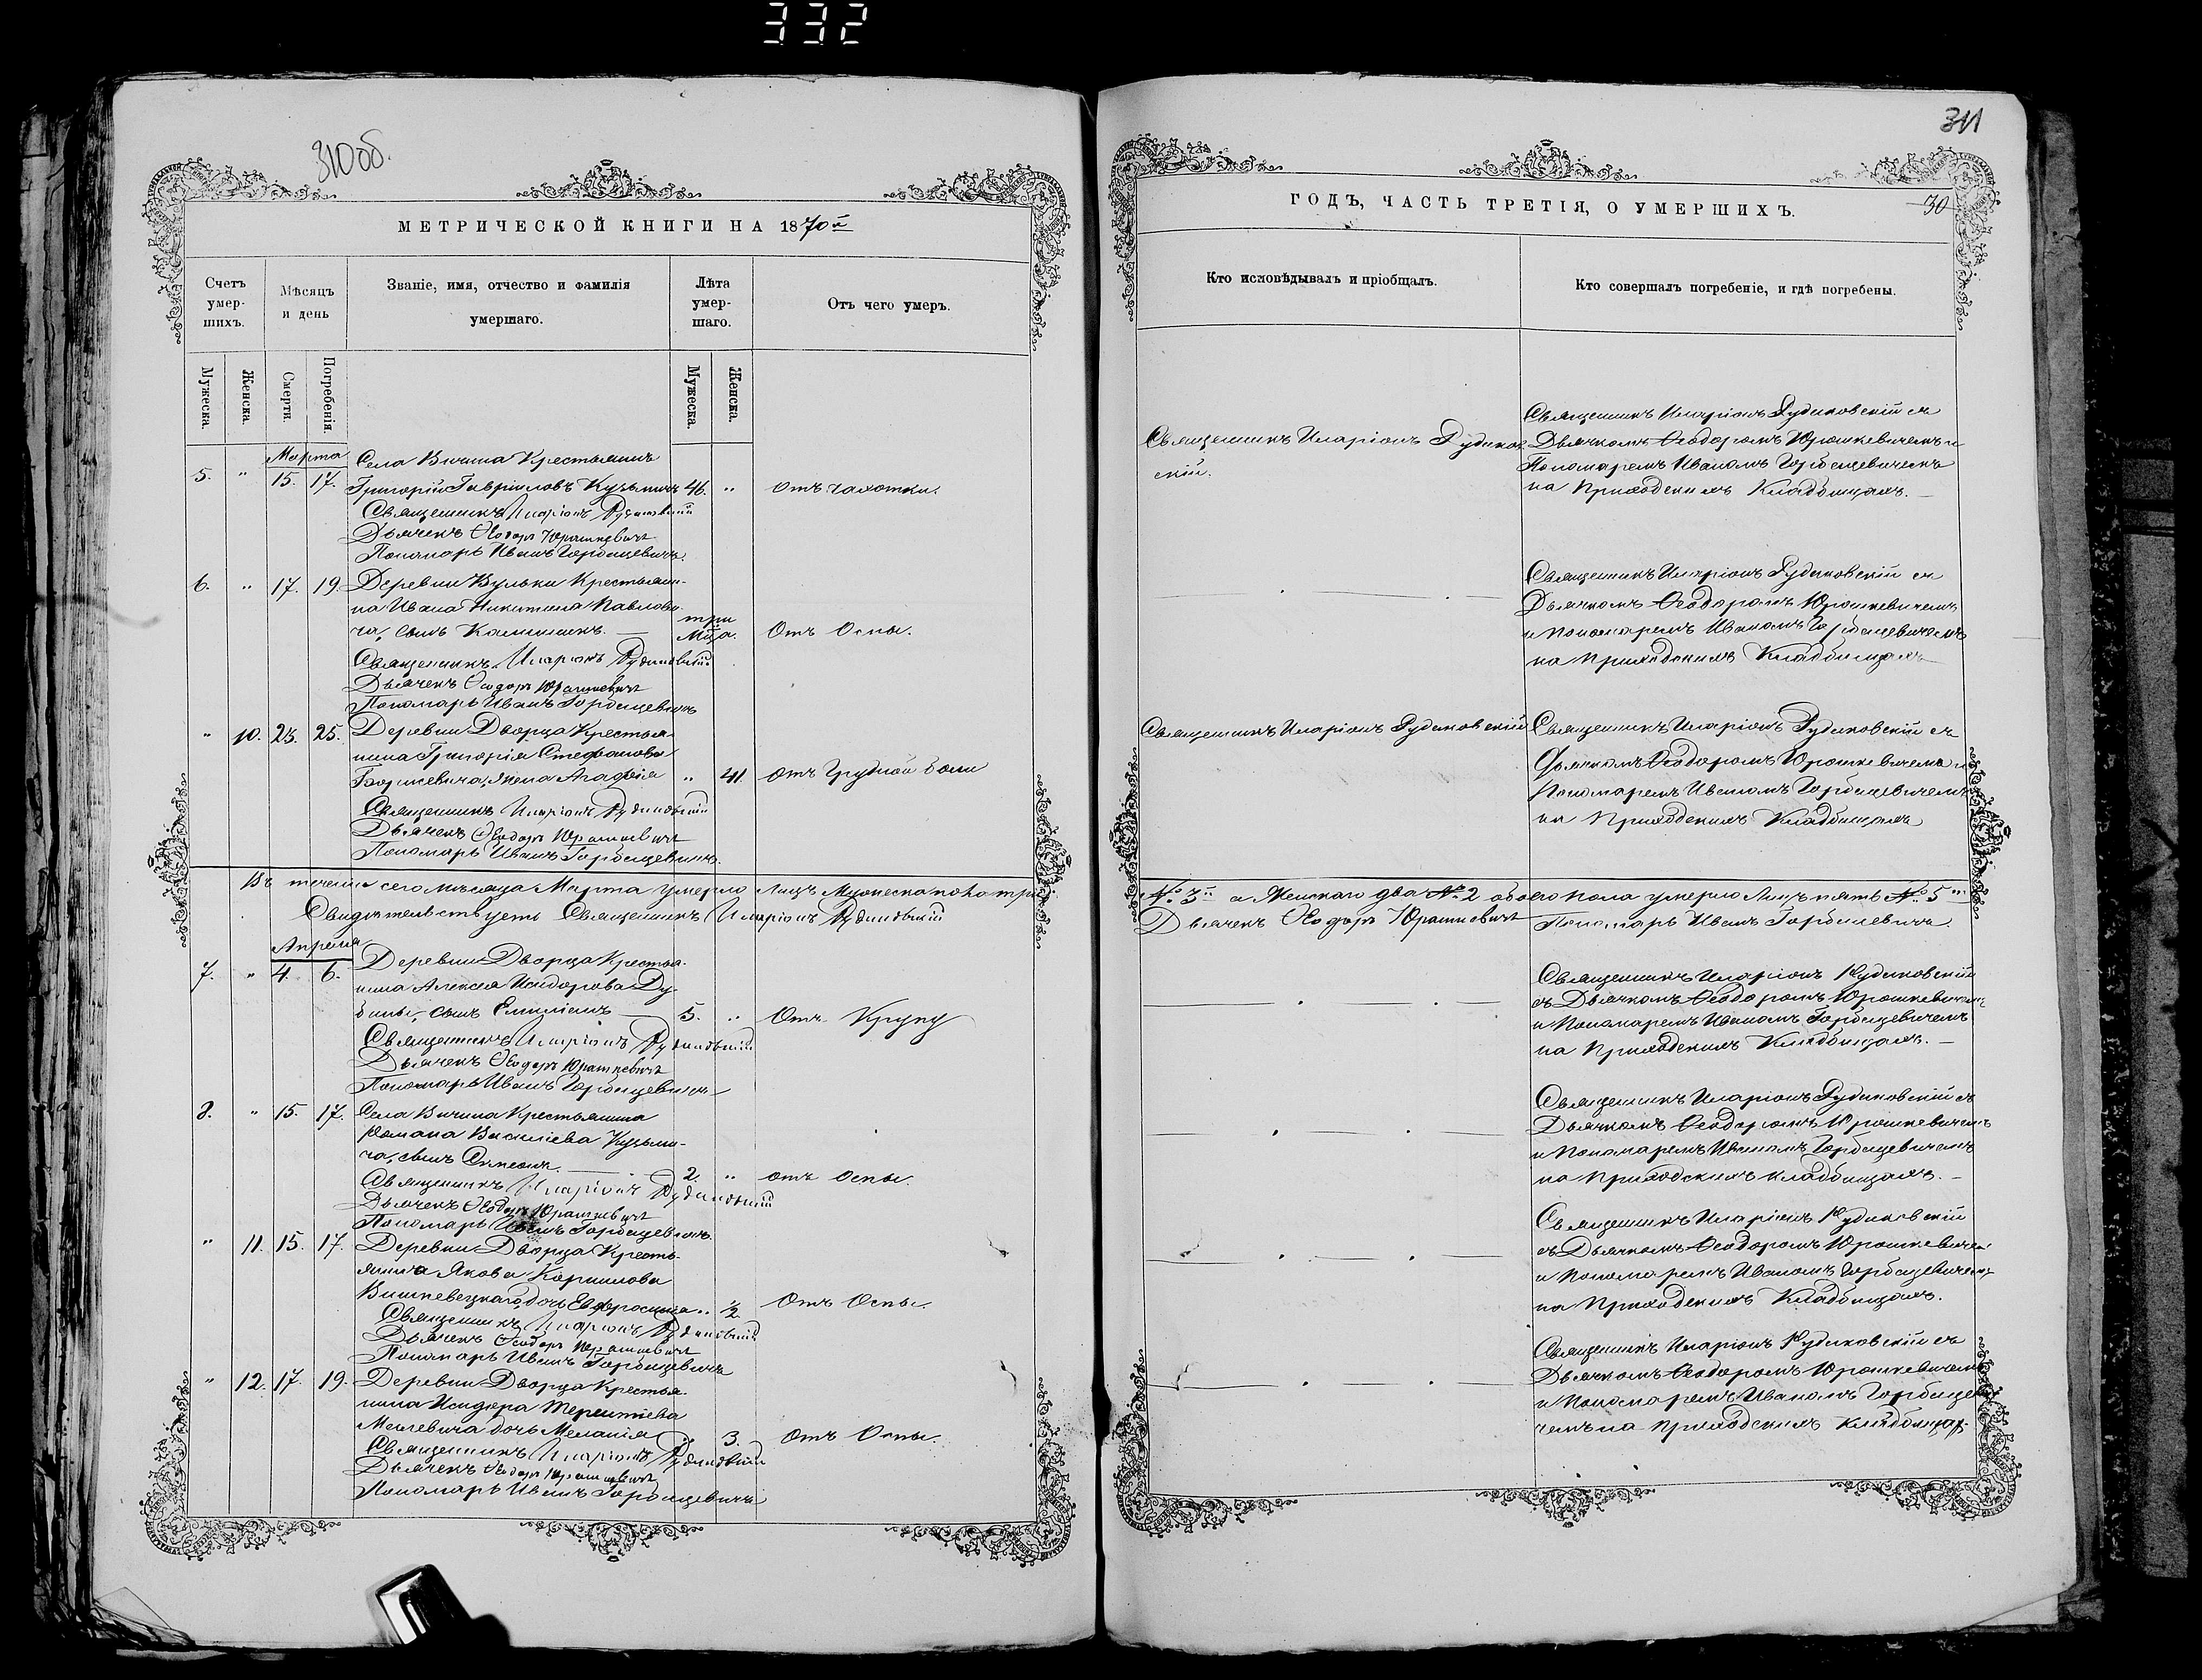 332
310об.
МЕТРИЧЕСКОЙ КНИГИ НА 1870й
Счетъ умер-шихъ.
Мѣсяцъ и день
Званіе, имя, отчество и фамилія умершаго.
Лѣта умер-шаго.
Отъ чего умеръ.
Мужеска.
Женска.
Смерти.
Погребенія.
Мужеска.
Женска.
Марта
5. " 15. 17. Села Вичина Крестьянинъ
Григорій Гавріиловъ Кузьмичъ 46. " отъ чахотки.
Священникъ Иларіонъ Рудиковскій
Дьячекъ Ѳеодоръ Юрашкевичъ
Пономарь Иванъ Горбацевичъ.
6. " 17. 19. Деревни Вульки Крестьяни-
на Ивана Никитина Павлови-
ча, сынъ Калинникъ. — три мѣс. Отъ Оспы.
Священникъ Иларіонъ Рудиковскій
Дьячекъ Ѳеодоръ Юрашкевичъ
Пономарь Иванъ Горбацевичъ
" 10. 23. 25. Деревни Дворца Крестья-
нина Григорія Стефанова
жена Агафія " 41. отъ Грудной боли
Священникъ Иларіонъ Рудиковскій
Дьячекъ Ѳеодоръ Юрашкевичъ
Пономарь Иванъ Горбацевичъ.
Въ теченіи сего мѣсяца Марта умерло лицъ Мужеска пола три
Свидѣтельствуетъ Священникъ Иларіонъ Рудиковскій
Апрѣля
7. " 4. 6. Деревни Дворца Крестья-
нина Алексея Исидорова Ду-
бины, сынъ Емиліанъ — 5. " Отъ Крупу
Священникъ Иларіонъ Рудиковскій
Дьячекъ Ѳеодоръ Юрашкевичъ
Пономарь Иванъ Горбацевичъ
8. " 15. 17. Села Вичина Крестьянина
Романа Василіева Кузьми-
ча, сынъ — 2. " отъ оспы.
Священникъ Иларіонъ Рудиковскій
Дьячекъ Ѳеодоръ Юрашкевичъ
Пономарь Иванъ Горбацевичъ.
" 11. 15. 17. Деревни Дворца Кресть-
янина Якова Корнилова
Вишневецкаго дочь Евфросинія " ½ Отъ Оспы.
Священникъ Иларіонъ Рудиковскій
Дьячекъ Ѳеодоръ Юрашкевичъ
Пономарь Иванъ Горбацевичъ
" 12. 17. 19. Деревни Дворца Крестья-
нина Исидора Терентіева
дочь Меланія " 3. Отъ Оспы.
Священникъ Иларіонъ Рудиковскій
Дьячекъ Ѳеодоръ Юрашкевичъ
Пономарь Иванъ Горбацевичъ
311
30
ГОДЪ, ЧАСТЬ ТРЕТІЯ, О УМЕРШИХЪ.
Кто исповѣдывалъ и пріобщалъ.
Кто совершалъ погребеніе, и гдѣ погребены.
Священникъ Иларіонъ Рудиков-
скій.
Священникъ Иларіонъ Рудиковскій съ
Дьячкомъ Ѳеодоромъ Юрашкевичемъ и
Пономаремъ Иваномъ Горбацевичемъ
на Приходскихъ Кладбищахъ. —
Священникъ Иларіонъ Рудиковскій съ
Дьячкомъ Ѳеодоромъ Юрашкевичемъ
и пономаремъ Иваномъ Горбацевичемъ
на Приходскихъ Кладбищахъ
Священникъ Иларіонъ Рудиковскій
Священникъ Иларіонъ Рудиковскій съ
Дьячкомъ Ѳеодоромъ Юрашкевичемъ и
Пономаремъ Иваномъ Горбацевичемъ
на Приходскихъ Кладбищахъ
№ 3й а Женскаго два № 2 обоего пола умерло Лицъ пять № 5
Дьячекъ Ѳеодоръ Юрашкевичъ Пономарь Иванъ Горбацевичъ.
Священникъ Иларіонъ Рудиковскій
съ Дьячкомъ Ѳеодоромъ Юрашкевичемъ
и Пономаремъ Иваномъ Горбацевичемъ
на Приходскихъ Кладбищахъ. —
Священникъ Иларіонъ Рудиковскій съ
Дьячкомъ Ѳеодоромъ Юрашкевичемъ
и Пономаремъ Иваномъ Горбацевичемъ
на Приходскихъ Кладбищахъ. —
Священникъ Иларіонъ Рудиковскій
съ Дьячкомъ Ѳеодоромъ Юрашкевичем
и Пономаремъ Иваномъ Горбацевичемъ
на Приходскихъ Кладбищахъ.
Священникъ Иларіонъ Рудиковскій съ
Дьячкомъ Ѳеодоромъ Юрашкевичемъ
и Пономаремъ Иваномъ Горбацеви
чемъ на приходскихъ кладбищах.